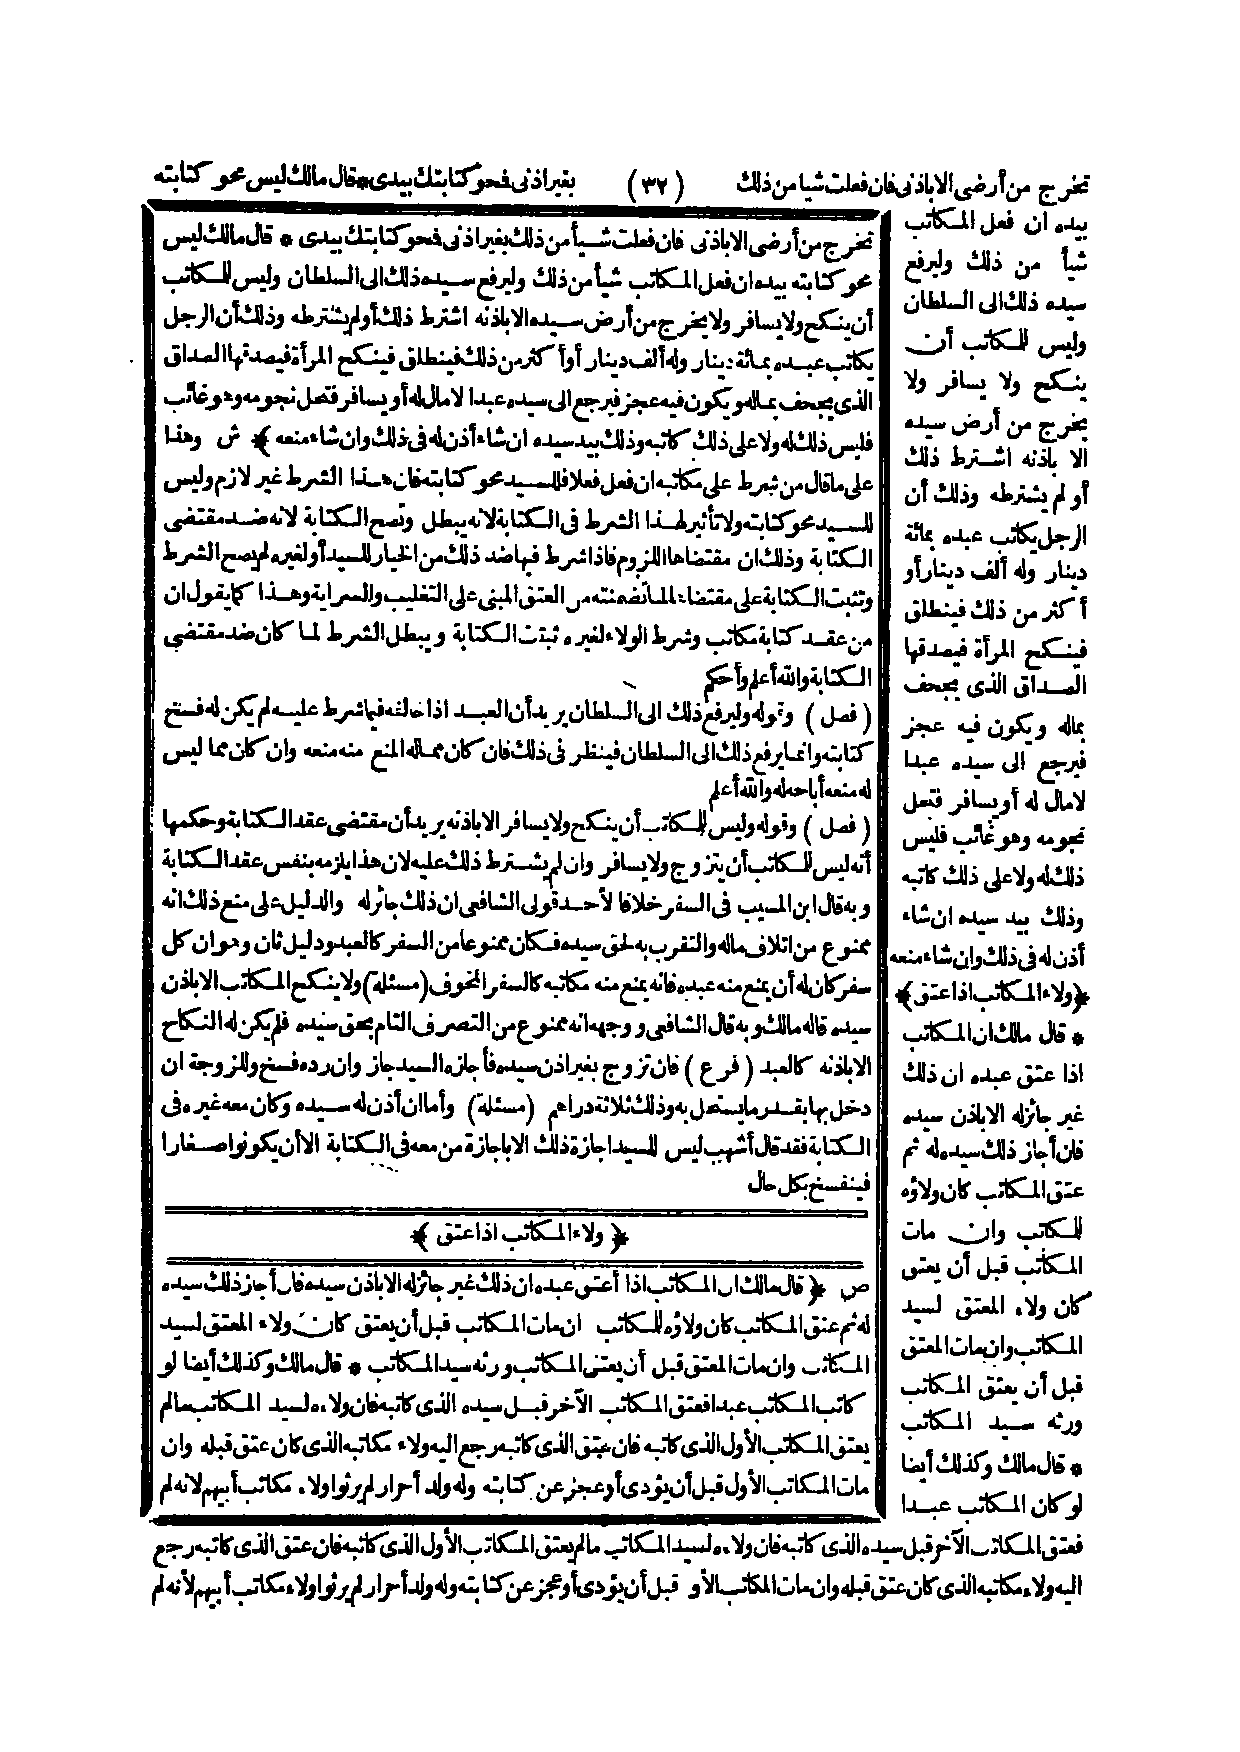 تخرج من أرضى الا باذنى فان فعلت شيأ من ذلك (٣٢) بغير اذنى فحو كتابتك بيدى * قال مالك ليس محو كتابته
بيده ان فعل المكاتب
شيأ من ذلك وليرفع
سيده ذلك الى السلطان
وليس للمكاتب أن
ينكح ولا يسافر ولا
يخرج من أرض سيده
الا باذنه اشترط ذلك
أو لم يشترطه وذلك أن
الرجل يكاتب عبده بمائة
دينار وله ألف دينار أو
أكثر من ذلك فينطلق
فينكح المرأة فيصدقها
الصداق الذى يجحف
بماله ويكون فيه عجز
فيرجع الى سيده عبدا
لا مال له أو يسافر فتحل
نجومه وهو غائب فليس
ذلك له ولا على ذلك كاتبه
وذلك بيد سيده ان شاء
أذن له فى ذلك وان شاء منعه
﴿ولاء المكاتب اذا عتق﴾
* قال مالك ان المكاتب
اذا عتق عبده ان ذلك
غير جائز له الا باذن سيده
فان أجاز ذلك سيده له ثم
عتق المكاتب كان ولاؤه
للمكاتب وان مات
المكاتب قبل أن يعتق
كان ولاء المعتق لسيد
المكاتب وان مات المعتق
قبل أن يعتق المكاتب
ورثه سيد المكاتب
* قال مالك وكذلك أيضا
لو كان المكاتب عبدا
فعتق المكاتب الآخر قبل سيده الذى كاتبه فان ولاءه لسيد المكاتب ما لم يعتق المكاتب الأول الذى كاتبه فان عتق الذى كاتبه رجع
اليه ولاء مكاتبه الذى كان عتق قبله وان مات المكاتب الأو قبل أن يؤدى أو عجز عن كتابته وله ولد أحرار لم يرثوا ولاء مكاتب أبيهم لأنه لم
تخرج من أرضى الا باذنى فان فعلت شيأ من ذلك بغير اذنى فحو كتابتك بيدى * قال مالك ليس
محو كتابته بيده ان فعل المكاتب شيأ من ذلك وليرفع سيده ذلك الى السلطان وليس للمكاتب
أن ينكح ولا يسافر ولا يخرج من أرض سيده الا باذنه اشترط ذلك أو لم يشترطه وذلك أن الرجل
يكاتب عبده بمائة دينار وله ألف دينار أو أكثر من ذلك فينطلق فينكح المرأة فيصدقها الصداق
الذى يجحف بماله ويكون فيه عجز فيرجع الى سيده عبدا لا مال له أو يسافر فتحل نجومه وهو غائب
فليس ذلك له ولا على ذلك كاتبه وذلك بيد سيده ان شاء أذن له فى ذلك وان شاء منعه ﴾ ش وهذا
على ما قال من شرط على مكاتبه ان فعل فعلا فللسيد محو كتابته فان هذا الشرط غير لازم وليس
للسيد محو كتابته ولا تأثير لهذا الشرط فى الكتابة لانه يبطل وتصح الكتابة لانه ضد مقتضى
الكتابة وذلك ان مقتضاها اللزوم فاذا شرط فيها ضد ذلك من الخيار للسيد أو لغيره لم يصح الشرط
وتثبت الكتابة على مقتضاها لما تضمنته من العتق المبنى على التغليب والسراية وهذا كما يقول ان
من عقد كتابة مكاتب وشرط الولاء لغيره ثبتت الكتابة ويبطل الشرط لما كان ضد مقتضى
الكتابة والله أعلم وأحكم
( فصل ) وقوله وليرفع ذلك الى السلطان يريد أن العبد اذا خالفه فيما شرط عليه لم يكن له فسخ
كتابته وانما يرفع ذلك الى السلطان فينظر فى ذلك فان كان مما له المنع منه منعه وان كان مما ليس
له منعه أباحه له والله أعلم
( فصل ) وقوله وليس للمكاتب أن ينكح ولا يسافر الا باذنه يريد أن مقتضى عقد الكتابة وحكمها
أنه ليس للمكاتب أن يتزوج ولا يسافر وان لم يشترط ذلك عليه لان هذا يلزمه بنفس عقد الكتابة
وبه قال ابن المسيب فى السفر خلافا لأحد قولى الشافعى ان ذلك جائز له والدليل على منع ذلك انه
ممنوع من اتلاف ماله والتقرب به لحق سيده فكان ممنوعا من السفر كالعبد ودليل ثان وهو ان كل
سفر كان له أن يمنع منه عبده فانه يمنع منه مكاتبه كالسفر المخوف (مسئلة) ولا ينكح المكاتب الا باذن
سيده قاله مالك وبه قال الشافعى ووجهه انه ممنوع من التصرف التام بحق سيده فلم يكن له النكاح
الا باذنه كالعبد ( فرع ) فان تزوج بغير اذن سيده فأجازه السيد جاز وان رده فسخ وللزوجة ان
دخل بها بقدر ما يستحل به وذلك ثلاثة دراهم (مسئلة) وأما ان أذن له سيده وكان معه غيره فى
الكتابة فقد قال أشهب ليس للسيد اجازة ذلك الا باجازة من معه فى الكتابة الا أن يكونوا صغارا
فينفسخ بكل حال
﴿ ولاء المكاتب اذا عتق ﴾
ص ﴿ قال مالك ان المكاتب اذا أعتق عبده ان ذلك غير جائز له الا باذن سيده فان أجاز ذلك سيده
له ثم عتق المكاتب كان ولاؤه للمكاتب ان مات المكاتب قبل أن يعتق كان ولاء المعتق لسيد
المكاتب وان مات المعتق قبل أن يعتق المكاتب ورثه سيد المكاتب * قال مالك وكذلك أيضا لو
كاتب المكاتب عبدا فعتق المكاتب الآخر قبل سيده الذى كاتبه فان ولاءه لسيد المكاتب ما لم
يعتق المكاتب الأول الذى كاتبه فان عتق الذى كاتبه رجع اليه ولاء مكاتبه الذى كان عتق قبله وان
مات المكاتب الأول قبل أن يؤدى أو عجز عن كتابته وله ولد أحرار لم يرثوا ولاء مكاتب أبيهم لانه لم